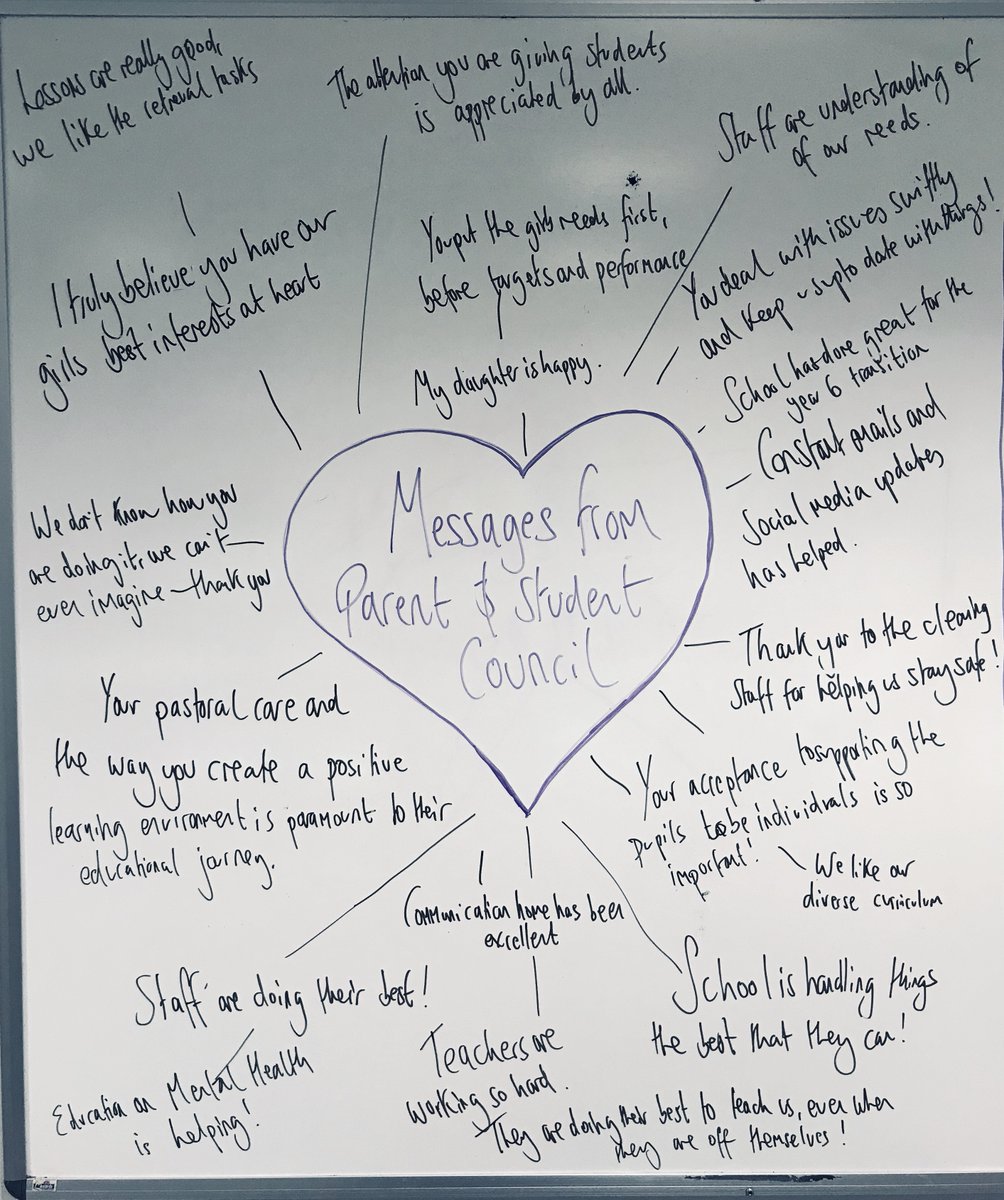 Lessons are really good,
we like the retrieval tasks
The attention you are giving students
is appreciated by all.
Staff are understanding of
of our needs.
I truly believe you have our
girls best interests at heart
You put the girls needs first,
before targets and performance
My daughter is happy.
You deal with issues swiftly
and keep us up to date with things!
School has done great for the
year 6 transition
Constant emails and
Social media updates
has helped.
Messages from
Parent & Student
Council
We don't know how you
are doing it, we can't
even imagine - thank you
Thank you to the cleaning
staff for helping us stay safe!
Your pastoral care and
the way you create a positive
learning environment is paramount to their
educational journey.
Your acceptance to supporting the
pupils to be individuals is so
important!
We like our
diverse curriculum
Communication home has been
excellent
Staff are doing their best!
Education on Mental Health
is helping!
Teachers are
working so hard.
They are doing their best to teach us, even when
they are off themselves!
School is handling things
the best that they can!